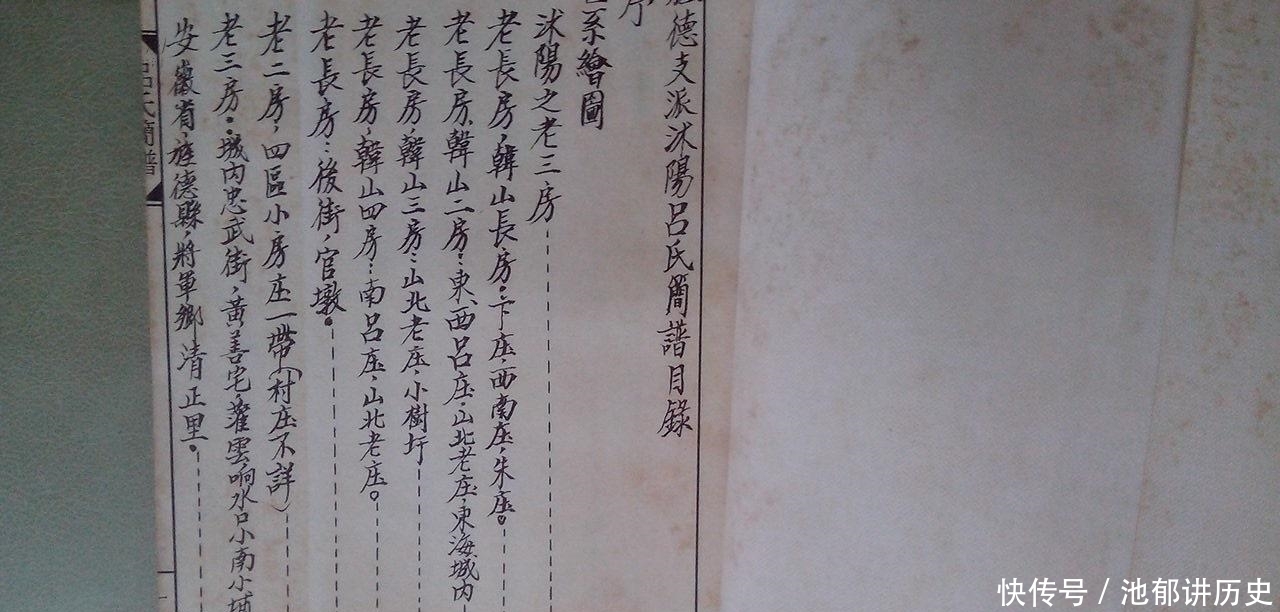 德支派沭陽呂氏簡譜目錄
序
系繪圖
沭陽之老三房
老長房，韓山長房。卞庄，西南庄，朱庄。
老長房，韓山二房：東、西呂庄，山北老庄，東海城內
老長房，韓山三房：山北老庄，小樹圩
老長房，韓山四房：南呂庄，山北老庄。
老長房：後街，官墩。
老二房，四區小房庄一帶（村庄不詳）
老三房：城內忠武街，黃善宅，灌雲响水口小南小埔
安徽省，旌德縣，將軍鄉，清正里。
呂氏簡譜
快传号 / 池郁讲历史